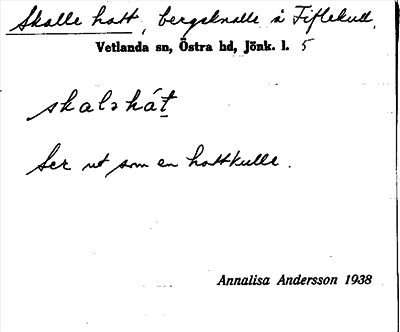 Skalle hatt, bergsknalle å Fiflekull.
Vetlanda sn, Östra hd, Jönk. l. 5
skalə hát
Ser ut som en hattkulle.
Annalisa Andersson 1938